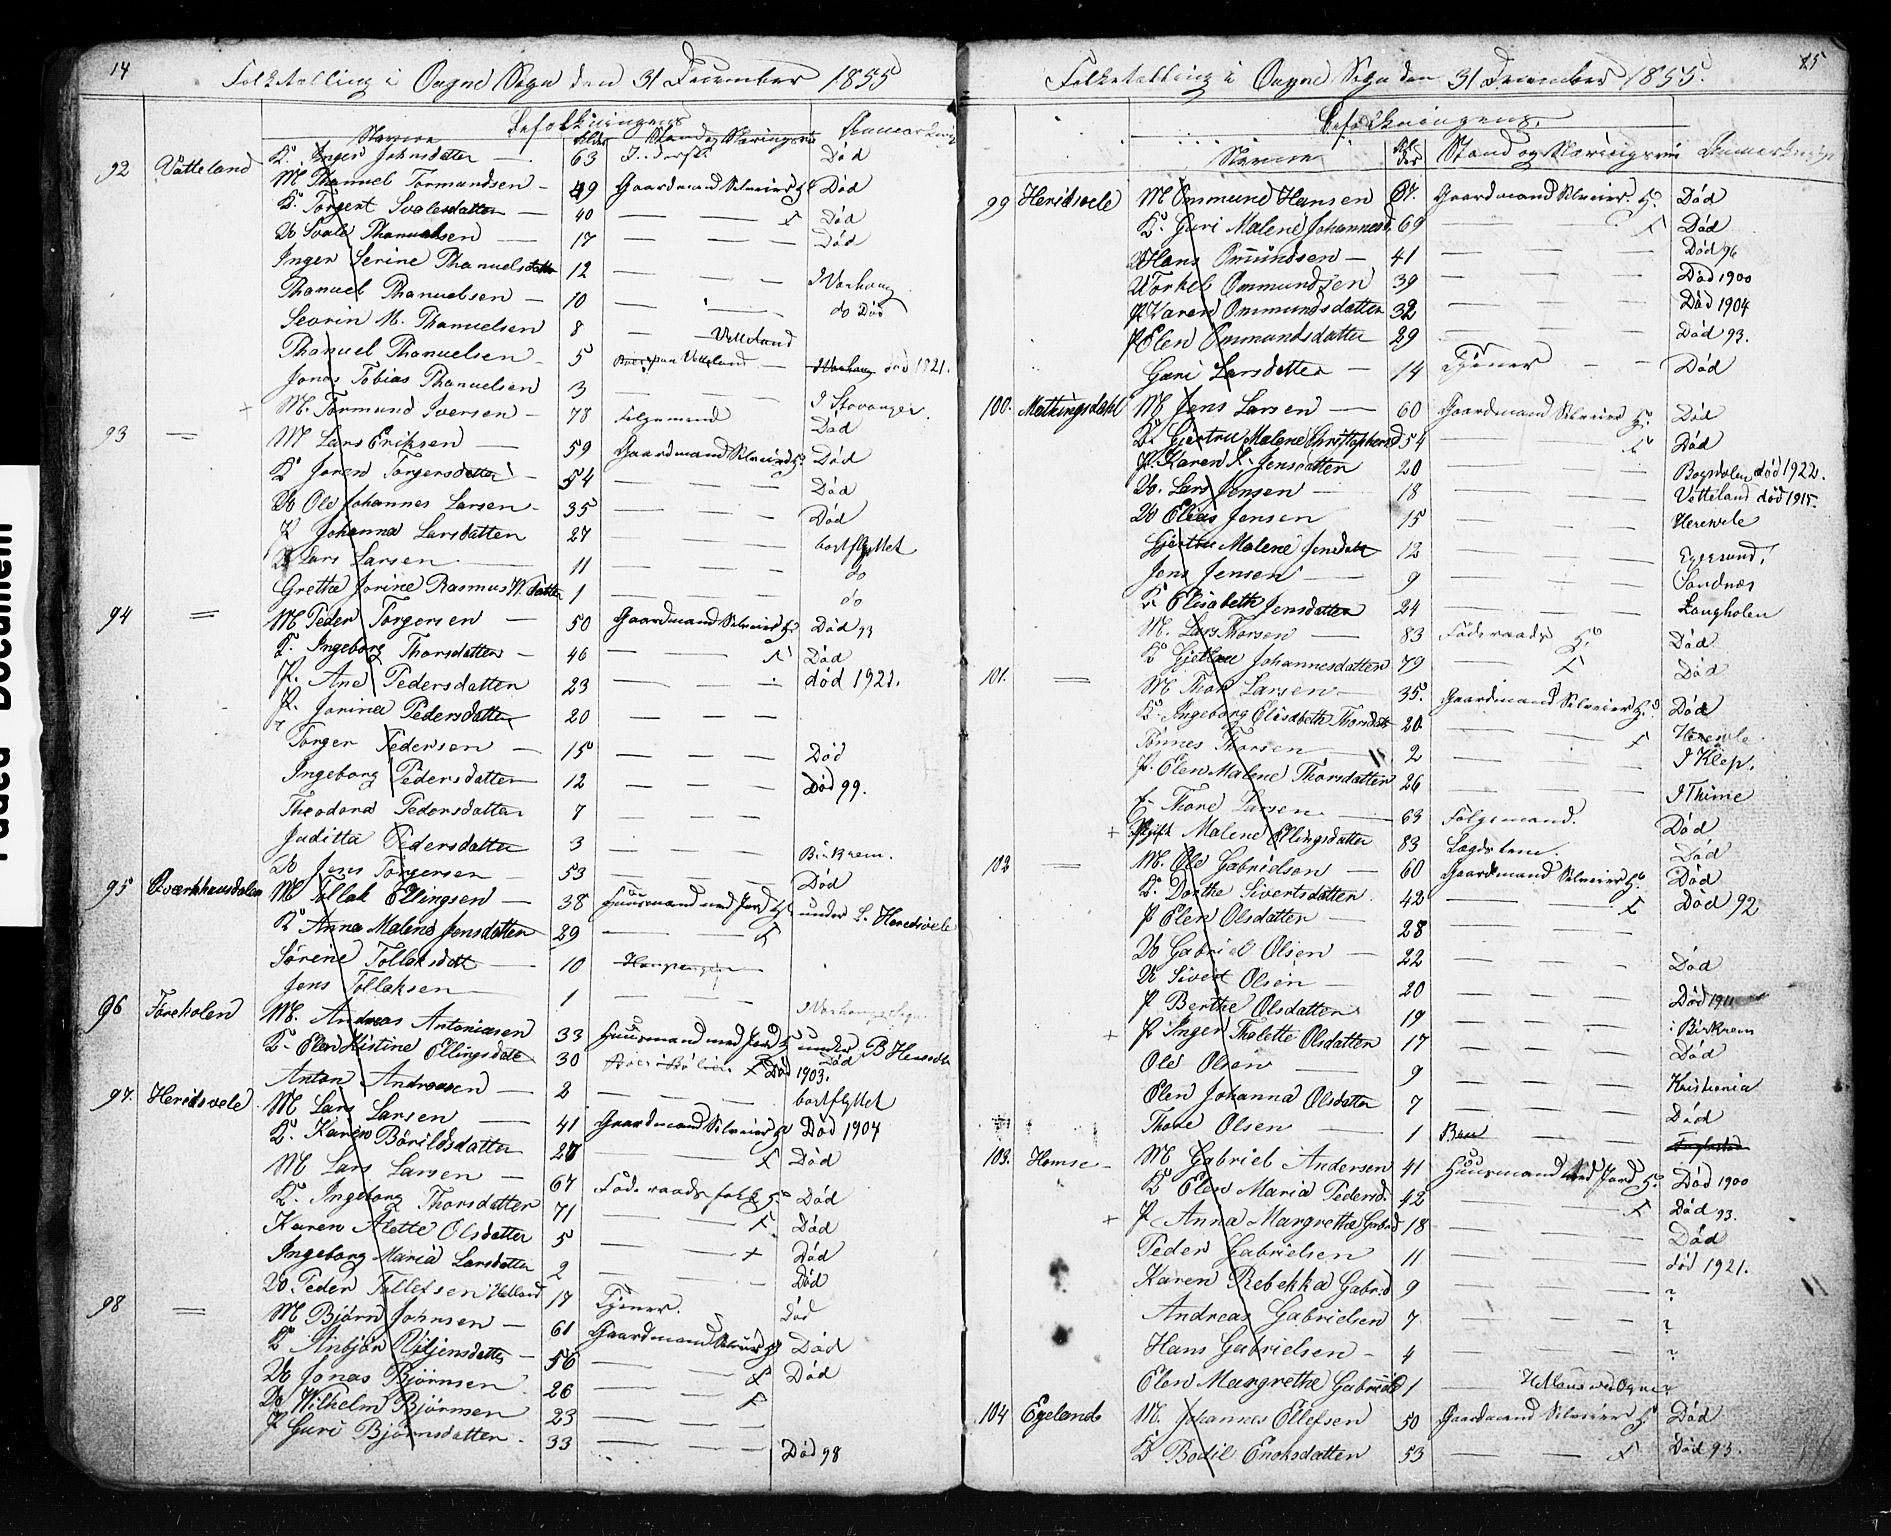 14
Folketælling i Ougne Sogn den 31 December 1855
Befolkningens
Navne Alder Stand og Næringsvei Anmærkning
K. Inger Johnsdatter — 63 Død
92 Vatteland M Thanuel Tormundsen — 49 Gaardmand Selveier G Død
K. Torgert Svalesdatter — 40 — — — Død
Svale Thanuelsen — 17 — — — Død
Inger Serine Thanuelsdatter 12 — — —
Thanuel Thanuelsen — 10 — I Varhoug
Sevrin M. Thanuelsen 8 — do Død
Thanuel Thanuelsen — 5 Vatteland — I Varhoug død 1921.
Jonas Tobias Thanuelsen 3 — — —
M. Tormund Iversen — 78 Folgemand I Stavanger
93 = M Lars Eriksen — 59 Gaardmand Selveier G Død
K Joren Torgersdatter 54 — — — Død
Ole Johannes Larsen — 35 — — — Død
P Johanna Larsdatter 27 — — — bortflyttet
Lars Larsen — 11 — — — do
Grethe Jorine Rasmus W. datter 1 — — — do
94 = M Peder Torgersen — 50 Gaardmand Selveier G Død 93
K. Ingeborg Thorsdatter — 46 — — Død
P. Ane Pedersdatter 23 — — død 1922.
P. Jorine Pedersdatter 20 — — —
Torger Pedersen — 15 — — — Død
Ingeborg Pedersdatter 12 — — — Død 99.
Theodora Pedersdatter 7 — — —
Juditta Pedersdatter 3 — — — Birkrem.
Jens Torgersen — 53 — — — Død
95 Qværnhuusdalen M Tollak Ellingsen — 38 Huusmand med Jord G under L. Heredsvele
K Anna Malene Jensdatter 29 — —
Sørine Tollaksdatt — 10
Jens Tollaksen — 1 — — —
96 Foreholen M. Andreas Antoniasen 33 Huusmand med Jord G under B Heredsv
K. Elen Kistine Ellingsdatt 30 Død 1903.
Anton Andreasen — 2 — — — bortflyttet
97. Heridsvele M Lars Larsen — 41 Gaardmand Selveier G Død 1904
K. Karen Børildsdatter 27 — — Død
M Lars Larsen — 67 Føderaadsfolk G Død
K. Ingeborg Thorsdatter 71 — — Død
Karen Alette Olsdatter 5 — — + Død
Ingeborg Maria Larsdatter 2 — — — Død
Peder Tollefsen Helland 17 Tjener. Død
98 = M Bjørn Johnsen — 61 Gaardmand Selveier G Død
K Anbjør Viljensdatter 56 — — Død
Jonas Bjørnsen 26 — —
Wilhelm Bjørnsen 23 — — —
P Guri Bjørnsdatter. 33 Død 98
15
Folketælling i Ougne Sogn den 31 December 1855.
Befolkningens
Navne Alder Stand og Næringsvei Anmærkning
99 Heridsvele M Ommund Hansen 67. Gaardmand Selveier. G. Død
K. Guri Malene Johannesd. 69 — — Død
Hans Ommundsen — 41 — — — Død 96
Torkel Ommundsen 39 — — — Død 1900
P Karen Ommundsdatter 32 — — — Død 1904
P Elen Ommundsdatter 29 — — — Død 93.
Guri Larsdatter — 14 Tjener — — Død
100. Matningsdahl M Jens Larsen — 60 Gaardmand Selveier G. Død
K. Gjertru Malene Christophersd 54 — — Død
P. Karen K. Jensdatter 20 — — — død 1922.
Lars Jensen — 18 — — — Vatteland død 1915.
Elias Jensen 15 — — — Herevele
Gjertru Malene Jensdatt 12 — — — Egersund.
Jens Jensen — 9 — — — Sandnæs
K. Elisabeth Jensdatter 24 — — — Langholen
M. Lars Thorsen — 83 Føderaads G. Død
K Gjertru Johannesdatter 79 — Død
101. = M Thor Larsen — 35. Gaardmand Selveier G. Død
K. Ingeborg Elisabeth Thorsdatt 20 — — Herevele
Tønnes Thorsen — 2 — — — I Klep.
P. Elen Malene Thorsdatter 26 — — — I Thime
E. Thore Larsen — 63 Folgemand. Død
+ Malene Ellingsdatter 83 Lægdslem. Død
102 = M. Ole Gabrielsen — 60 Gaardmand Selveier G. Død
K. Dorthe Sivertsdatter 42 — — Død 92
P Elen Olsdatter — 28 — — —
Gabriel Olsen — 22 — — — Død
Sivert Olsen — 20 — — — Død 1911
P Berthe Olsdatter 19 — — — i Birkrem
+ P Inger Tholette Olsdatter 17 — — — Død
Ole Olsen — 9 — — — Kristiania
Elen Johanna Olsdatter 7 — — — Død
Thore Olsen — 1 — — —
103. Homse — M Gabriel Andersen 41 Huusmand med Jord G. Død 1900
K Elen Maria Pedersd. 42 — — Død 93.
+ P Anna Margrethe Gabrd 18 — — — Død
Peder Gabrielsen 11 — — — død 1921.
Karen Rebekka Gabrd 9 — — — ?
Andreas Gabrielsen 7 — — — ?
Hans Gabrielsen — 4 — — — ?
Elen Margrethe Gabrield 1 —
104 Egeland M. Johannes Ellefsen 50 Gaardmand Selveier G Død
K Bodil Enoksdatter 53 — — Død 93.